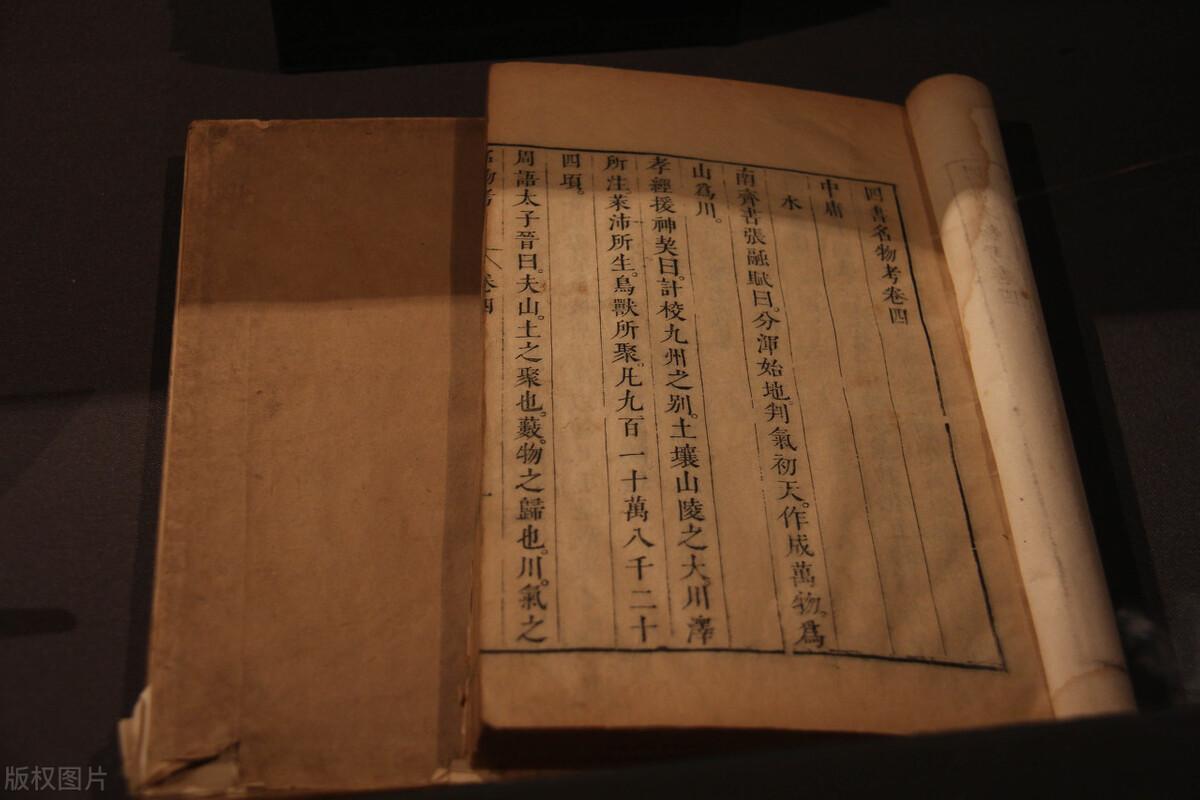 四書名物考卷四
中庸
水
南齊書張融賦曰。分渾始地。判氣初天。作成萬物。爲
山爲川。
孝經援神契曰。計校九州之别。土壤山陵之大。川澤
所注。萊沛所生。鳥獸所聚。凡九百一十萬八千二十
四頃。
周語太子晉曰。夫山。土之聚也。藪。物之歸也。川。氣之
名物考 卷四 一
版权图片